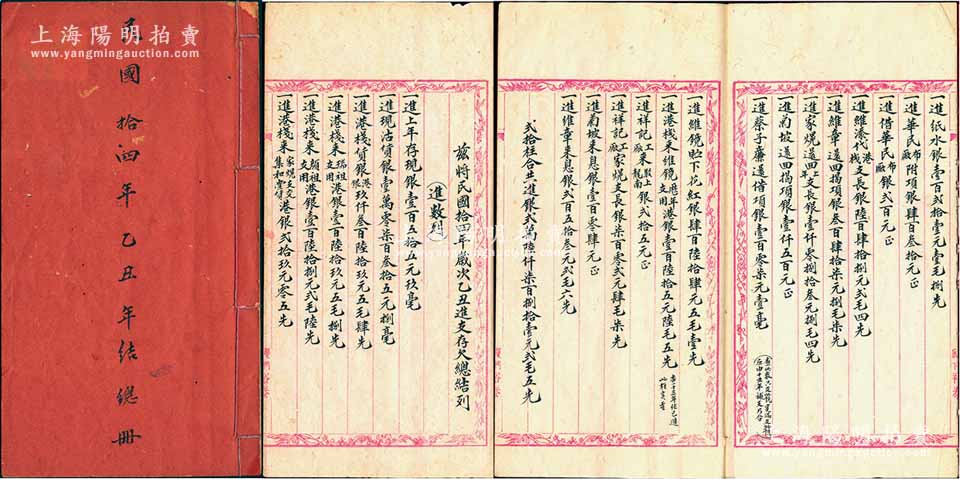 上海陽明拍賣
www.yangmingauction.com
民國拾四年乙丑年結總冊
茲將民國拾四年歲次乙丑進支存欠總結列
進數列
一進上年存現銀壹百五拾五元玖毫
一進現沽貨銀壹萬零柒百叁拾五元捌毫
一進港棧貨銀港銀玖仟叁百陸拾玖元五毛肆先
一進港棧來瑞祖支用港銀壹百陸拾玖元五毛捌先
一進港棧來顯祖支用港銀壹百陸拾捌元弍毛陸先
一進港棧來家焜支交集和堂會港銀弍拾玖元零五先
一進紙水銀壹百弍拾壹元壹毛捌先
一進華民布廠附項銀肆百叁拾元正
一進借華民布廠銀弍百元正
一進維湊代港棧支長銀陸百捌拾元弍毛四先
一進維章還四揭項銀叁百肆拾柒元捌毛柒先
一進家焜還四上年支長銀壹仟零捌拾叁元捌毛四先
一進南坡還四揭項銀壹仟五百元正
一進蔡子廉還借項銀壹百零柒元壹毫
一進維鏡賒下花紅銀肆百陸拾肆元五毛壹先
一進港棧來維鏡歷年支用港銀壹百陸拾五元陸毛五先
一進祥記工廠來殿上龍南銀弍拾五元正
一進祥記工廠家焜支長銀柒百零弍元肆毛柒先
一進南坡來息銀壹百零肆元正
一進維章來息銀弍百五拾叁元弍毛六先
弍拾柱合共進銀弍萬陸仟柒百捌拾壹元弍毛五先
上海陽明拍賣
www.yangmingauction.com